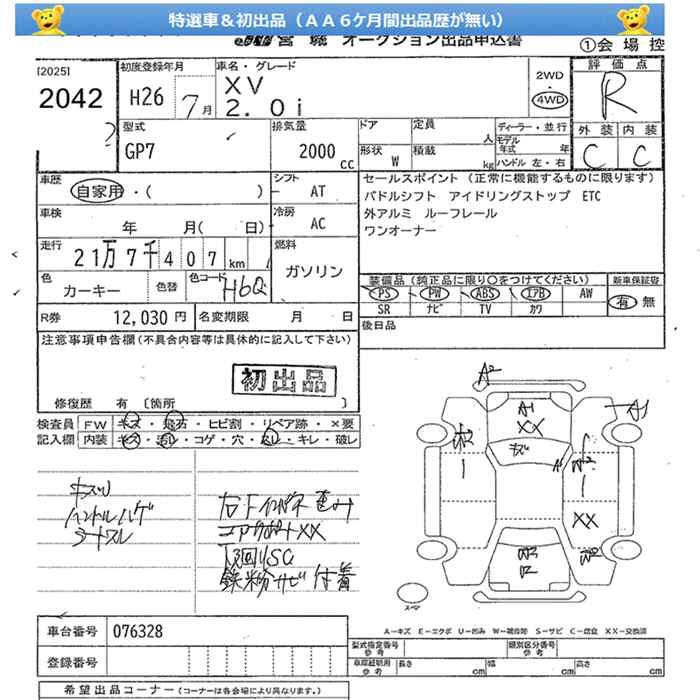 特選車＆初出品（ＡＡ６ケ月間出品歴が無い）
オークション出品申込書
①会場控
[2025]
2042
初度登録年月
H26 7月
車名・グレード
XV
2.0i
2WD
4WD
評価点
R
外装 内装
C C
型式
GP7
排気量
2000 cc
ドア
定員
人
形状
W
積載
kg
ディーラー・並行
モデル年式
年
ハンドル 左・右
車歴
自家用・( )
シフト
AT
セールスポイント（正常に機能するものに限ります）
パドルシフト アイドリングストップ ETC
外アルミ ルーフレール
ワンオーナー
車検
年 月( 日)
冷房
AC
走行
21万7千407km
燃料
ガソリン
色
カーキー
色替
色コード
H6Q
装備品（純正品に限り○をつけてください）
新車保証書
PS PW ABS エアB AW
SR ナビ TV カワ
有 無
R券
12,030円
名変期限 月 日
後日品
注意事項申告欄(不具合内容等は具体的に記入して下さい)
初出品
修復歴 有 〔箇所 〕
検査員記入欄
FW キズ・飛石・ヒビ割・リペア跡・×要
内装 キズ・汚レ・コゲ・穴・スレ・キレ・破レ
キズU
ハンドルハゲ
シートスレ
コアサポートXX
下回りSC
鉄粉サビ付着
A2
A1
XX
キズ
XX
スペア
A－キズ E－エクボ U－凹み W－補修跡 S－サビ C－腐食 XX－交換済
車台番号
076328
登録番号
型式指定番号
参考
類別区分番号
参考
車庫証明用
参考
長さ cm
幅 cm
高さ cm
希望出品コーナー（コーナーは各会場により異なります。）